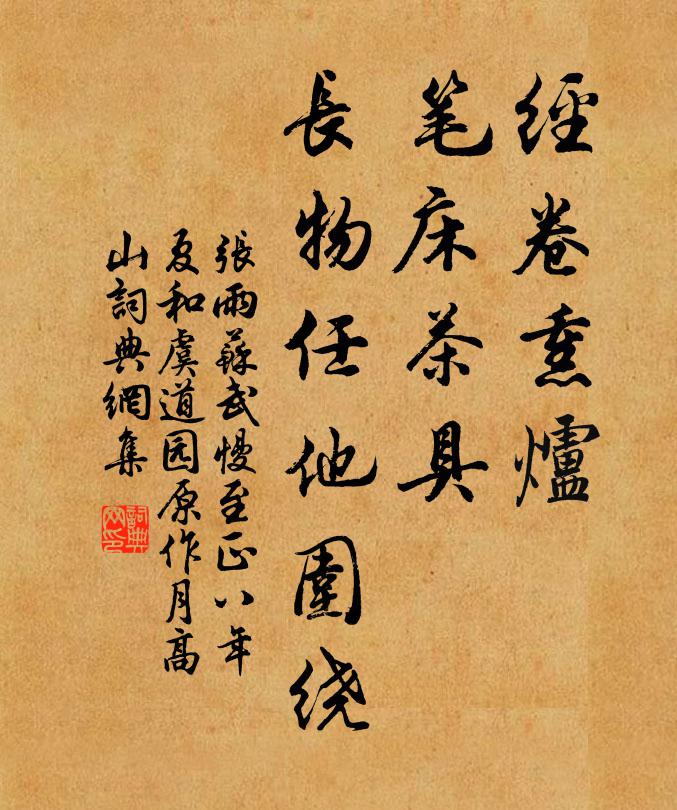 經卷熏爐
笔床茶具
長物任他圍绕
張雨蘇武慢至正八年
夏和虞道园原作月高
山詞典網集
詞典
网印